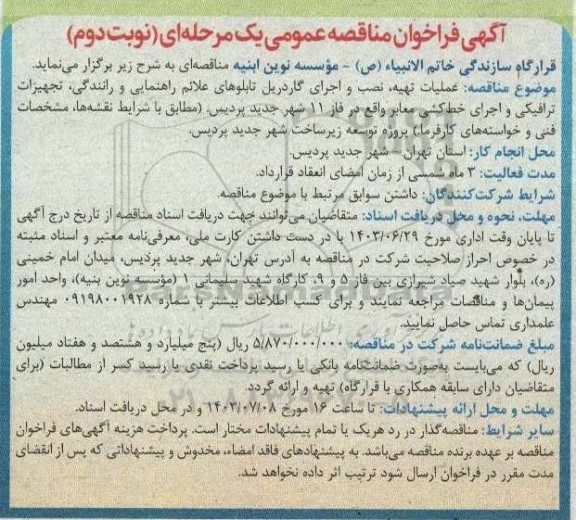 آگهی فراخوان مناقصه عمومی یک مرحله‌ای (نوبت دوم)
قرارگاه سازندگی خاتم الانبیاء (ص) - مؤسسه نوین ابنیه مناقصه‌ای به شرح زیر برگزار می‌نماید.
موضوع مناقصه: عملیات تهیه، نصب و اجرای گاردریل تابلوهای علائم راهنمایی و رانندگی، تجهیزات
ترافیکی و اجرای خط‌کشی معابر واقع در فاز ۱۱ شهر جدید پردیس. (مطابق با شرایط نقشه‌ها، مشخصات
فنی و خواسته‌های کارفرما) پروژه توسعه زیرساخت شهر جدید پردیس.
محل انجام کار: استان تهران – شهر جدید پردیس.
مدت فعالیت: ۳ ماه شمسی از زمان امضای انعقاد قرارداد.
شرایط شرکت‌کنندگان: داشتن سوابق مرتبط با موضوع مناقصه.
مهلت، نحوه و محل دریافت اسناد: متقاضیان می‌توانند جهت دریافت اسناد مناقصه از تاریخ درج آگهی
تا پایان وقت اداری مورخ ۱۴۰۳/۰۶/۲۹ با در دست داشتن کارت ملی، معرفی‌نامه معتبر و اسناد مثبته
در خصوص احراز صلاحیت شرکت در مناقصه به آدرس تهران، شهر جدید پردیس، میدان امام خمینی
(ره)، بلوار شهید صیاد شیرازی بین فاز ۵ و ۹، کارگاه شهید سلیمانی ۱ (مؤسسه نوین بنیه)، واحد امور
پیمان‌ها و مناقصات مراجعه نمایند و برای کسب اطلاعات بیشتر با شماره ۰۹۱۹۸۰۰۱۹۲۸ مهندس
علمداری تماس حاصل نمایید.
مبلغ ضمانت‌نامه شرکت در مناقصه: ۵/۸۷۰/۰۰۰/۰۰۰ ریال (پنج میلیارد و هشتصد و هفتاد میلیون
ریال) که می‌بایست به‌صورت ضمانت‌نامه بانکی یا رسید پرداخت نقدی یا رسید کسر از مطالبات (برای
متقاضیان دارای سابقه همکاری با قرارگاه) تهیه و ارائه گردد.
مهلت و محل ارائه پیشنهادات: تا ساعت ۱۶ مورخ ۱۴۰۳/۰۷/۰۸ و در محل دریافت اسناد.
سایر شرایط: مناقصه‌گذار در رد هریک یا تمام پیشنهادات مختار است. پرداخت هزینه آگهی‌های فراخوان
مناقصه بر عهده برنده مناقصه می‌باشد. به پیشنهادهای فاقد امضاء، مخدوش و پیشنهاداتی که پس از انقضای
مدت مقرر در فراخوان ارسال شود ترتیب اثر داده نخواهد شد.